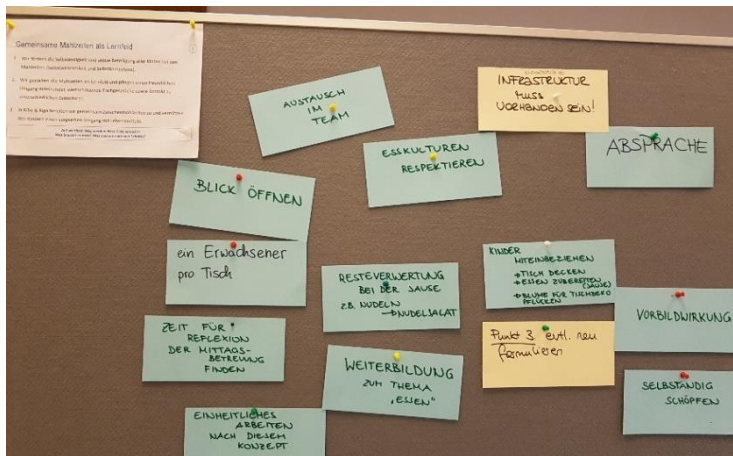 Gemeinsame Mahlzeiten als Lernfeld
AUSTAUSCH
IM
TEAM
INFRASTRUKTUR
MUSS
VORHANDEN SEIN!
ESSKULTUREN
RESPEKTIEREN
ABSPRACHE
BLICK ÖFFNEN
ein Erwachsener
pro Tisch
RESTEVERWERTUNG
BEI DER JAUSE
ZB. NUDELN
→NUDELSALAT
KINDER
MITEINBEZIEHEN
→TISCH DECKEN
→ESSEN ZUBEREITEN
(JAUSE)
→BLUME FÜR TISCHDEKO
PFLÜCKEN
VORBILDWIRKUNG
ZEIT FÜR
REFLEXION
DER MITTAGS-
BETREUUNG
FINDEN
WEITERBILDUNG
ZUM THEMA
„ESSEN"
Punkt 3 evtl. neu
formulieren
SELBSTÄNDIG
SCHÖPFEN
EINHEITLICHES
ARBEITEN
NACH DIESEM
KONZEPT